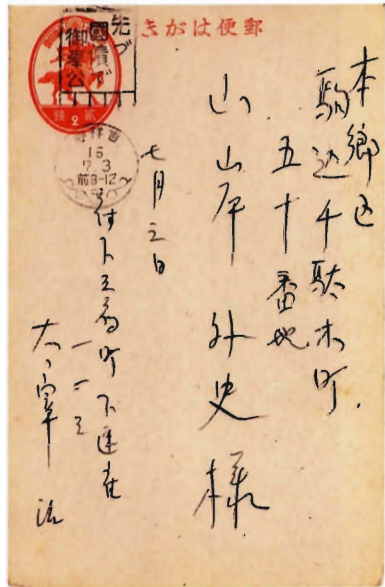 郵便はがき
先づ
國債で
御奉公
2
吉祥
16
7.3
前8-12
本郷区
駒込千駄木町、
五十番地
山岸外史様
七月三日
府下三鷹町下連雀
一一三
太宰治